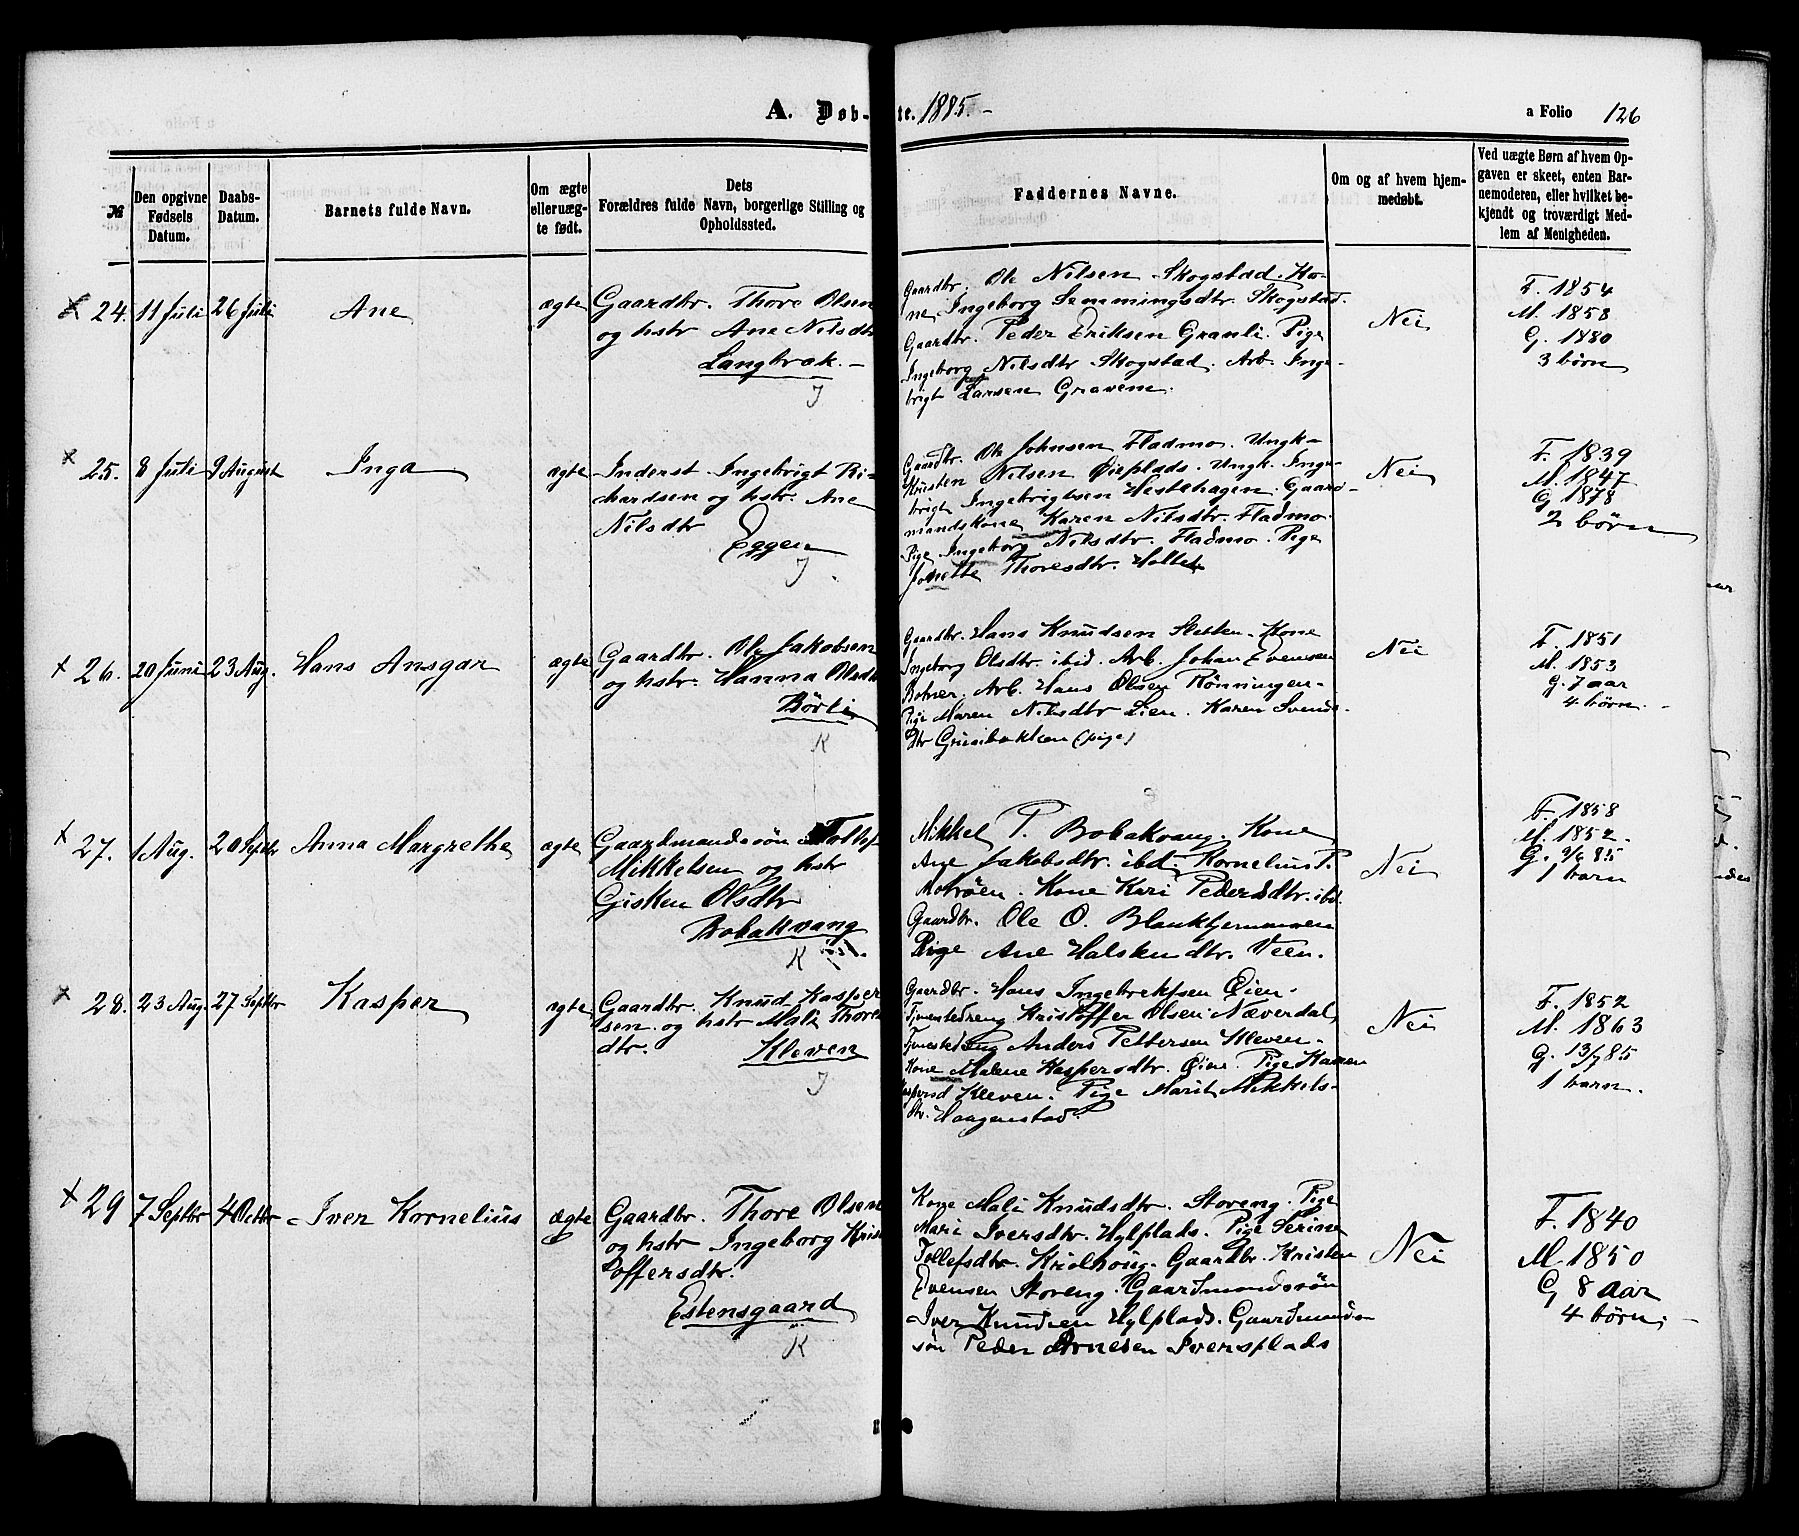 A. Døb-te. 1885.-
a Folio 126
№
Den opgivne Fødsels Datum.
Daabs-Datum.
Barnets fulde Navn.
Om ægte eller uægte født.
Dets Forældres fulde Navn, borgerlige Stilling og Opholdssted.
Faddernes Navne.
Om og af hvem hjemmedøbt.
Ved uægte Børn af hvem Opgaven er skeet, enten Barnemoderen, eller hvilket bekjendt og troværdigt Medlem af Menigheden.
24. 11 Juli 26 Juli Ane ægte
Gaardbr. Thore Olsen
og hstr Ane Nilsdtr
Langbræk. -
J
Gaardbr. Ole Nilsen Skogstad. Ko-
ne Ingeborg Semmingsdtr. Skogstad.
Gaardbr. Peder Eriksen Granli. Pige
Ingeborg Nilsdtr Skogstad. Arb. Inge-
brigt Larsen Gravem.
Nei
F. 1854
M. 1858
G. 1880
3 børn
25. 8 Juli 9 August Inga ægte
Inderst. Ingebrigt Ri-
chardsen og hstr. Ane
Nilsdtr
Eggen
J.
Gaardbr. Ole Johnsen Fladmo. Ungk-
Kristen Nilsen Øieplads. Ungk. Inge-
brigt Ingebrigtsen Hestehagen. Gaard-
mandskone Karen Nilsdtr. Fladmo.
Pige Ingeborg Nilsdtr. Fladmo. Pige
Jonette Thoresdtr. Holtet
Nei
F. 1839
M. 1847
G 1878
2 børn
26. 20 Juni 23 Aug. Hans Ansgar ægte
Gaardbr. Ole Jakobsen
og hstr. Hanna Olsdtr
Børli
K
Gaardbr. Hans Knudsen Sletten. Kone
Ingeborg Olsdtr. ibid. Arb. Johan Evensen
Botner. Arb. Hans Olsen Rønningen.
Pige Maren Nilsdtr Lien. Karen Svends-
dtr Grusbakken (pige)
Nei
F. 1851
M. 1853
G. 7 aar
4 børn.
27. 1 Aug. 20 Septbr Anna Margrethe ægte
Gaardmandssøn Tollef
Mikkelsen og hstr
Gisken Olsdtr
Bobakvang
K
Mikkel T. Bobakvang. Kone
Ane Jakobsdtr. ibd. Kornelius P.
Motrøen. Kone Kari Pedersdtr. ibd.
Gaardbr. Ole O. Blanktjernmoen
Pige Ane Halstendtr. Veen.
Nei
F. 1858
M. 1852
G. 9/6 85
1 barn
28. 23 Aug. 27 Septbr Kasper ægte
Gaardbr. Knud Kasper
sen og hstr Mali Thores
dtr.
Kleven
J
Gaardbr. Hans Ingebrektsen Øien.
Tjenestedreng Kristoffer Olsen Næverdal,
Tjenestedreng Anders Pettersen Kleven.
Kone Malene Kaspersdtr. Øien. Pige Karen
Kaspersd Kleven. Pige Marit Mikkels-
dtr. Haagenstad
Nei
F. 1852
M. 1863
G. 13/7 85
1 barn.
29 7 Septbr 4 Octbr Iver Kornelius ægte
Gaardbr. Thore Olsen
og hstr Ingeborg Kris
toffersdtr.
Estensgaard
K
Kone Mali Knudsdtr. Storeng. Pige
Mari Iversdtr. Hylplads. Pige Serine
Tollefsdtr. Kvolhaug. Gaardbr. Kristen
Evensen Storeng. Gaardmandssøn
Iver Knudsen Hylplads. Gaardmands-
søn Peder Arnesen Iversplads
Nei
F. 1840
M. 1850
G 8 aar
4 børn.